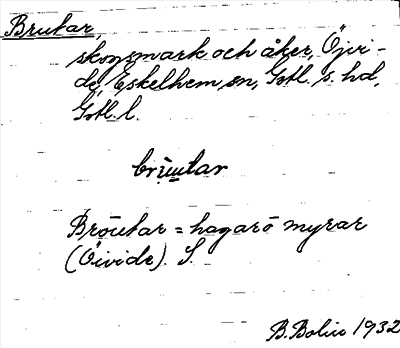 Brutar,
skogsmark och åker, Öjvi-
de, Eskelhem sn, Gotl. s. hd,
Gotl. l.
brùutar
Broutar = hagar o myrar
(Öivide). S.
B. Bolin 1932